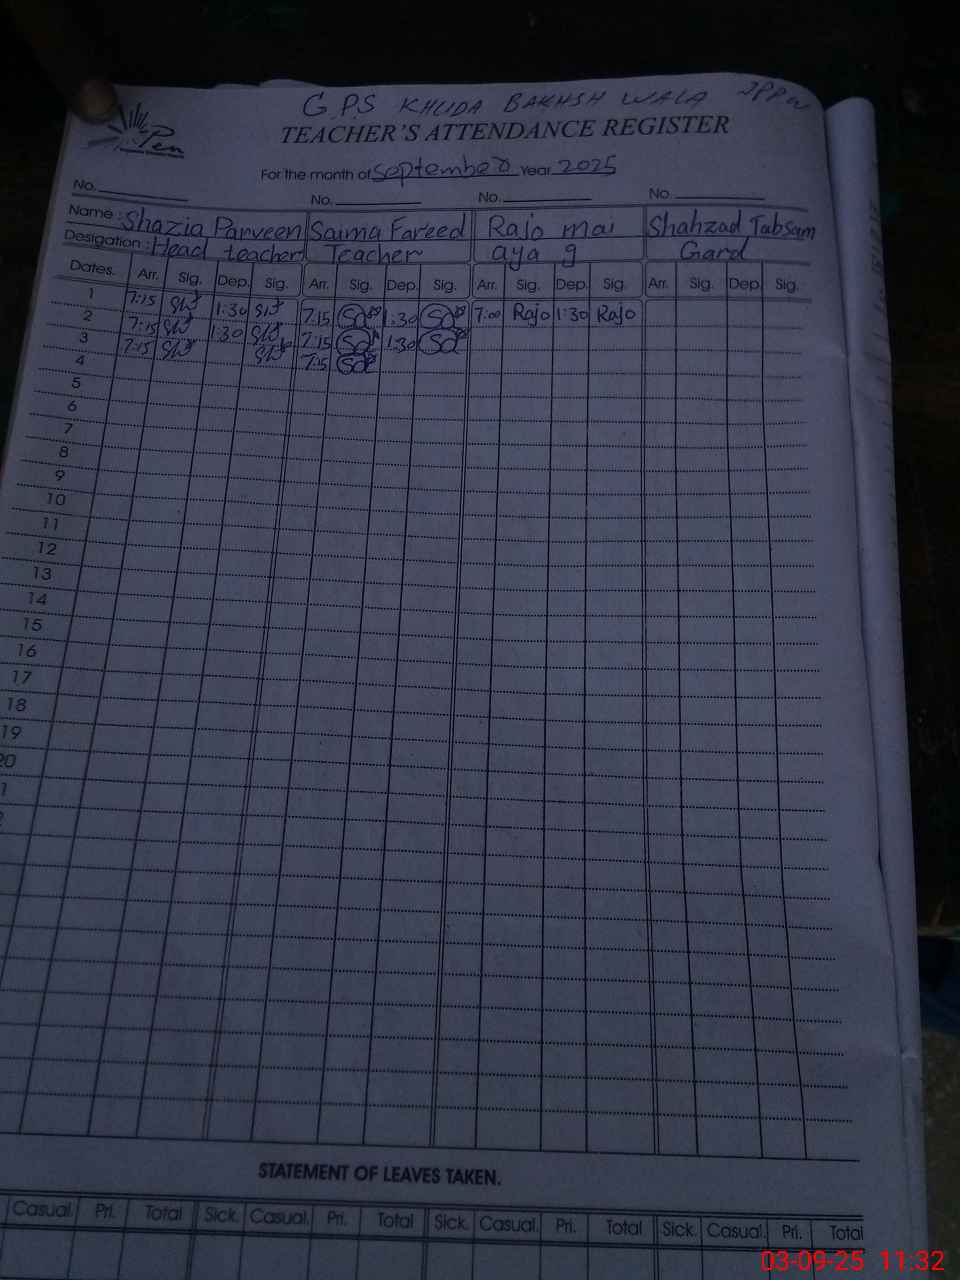 G.P.S KHUDA BAKHSH WALA
Pen
TEACHER'S ATTENDANCE REGISTER
For the month of September Year 2025
No. No. No. No.
Name : Shazia Parveen Saima Fareed Rajo mai Shahzad Tabsam
Desigation : Head teacher Teacher aya g Gard
Dates. Arr. Sig. Dep. Sig. Arr. Sig. Dep. Sig. Arr. Sig. Dep. Sig. Arr. Sig. Dep. Sig.
1 7:15 1:30 7:15 1:30 7:00 Rajo 1:30 Rajo
2 7:15 1:30 7:15 1:30
3 7:15 7:15
4
5
6
7
8
9
10
11
12
13
14
15
16
17
18
19
20
1
STATEMENT OF LEAVES TAKEN.
Casual. Pri. Total Sick. Casual. Pri. Total Sick. Casual. Pri. Total Sick. Casual. Pri. Total
03-09-25 11:32